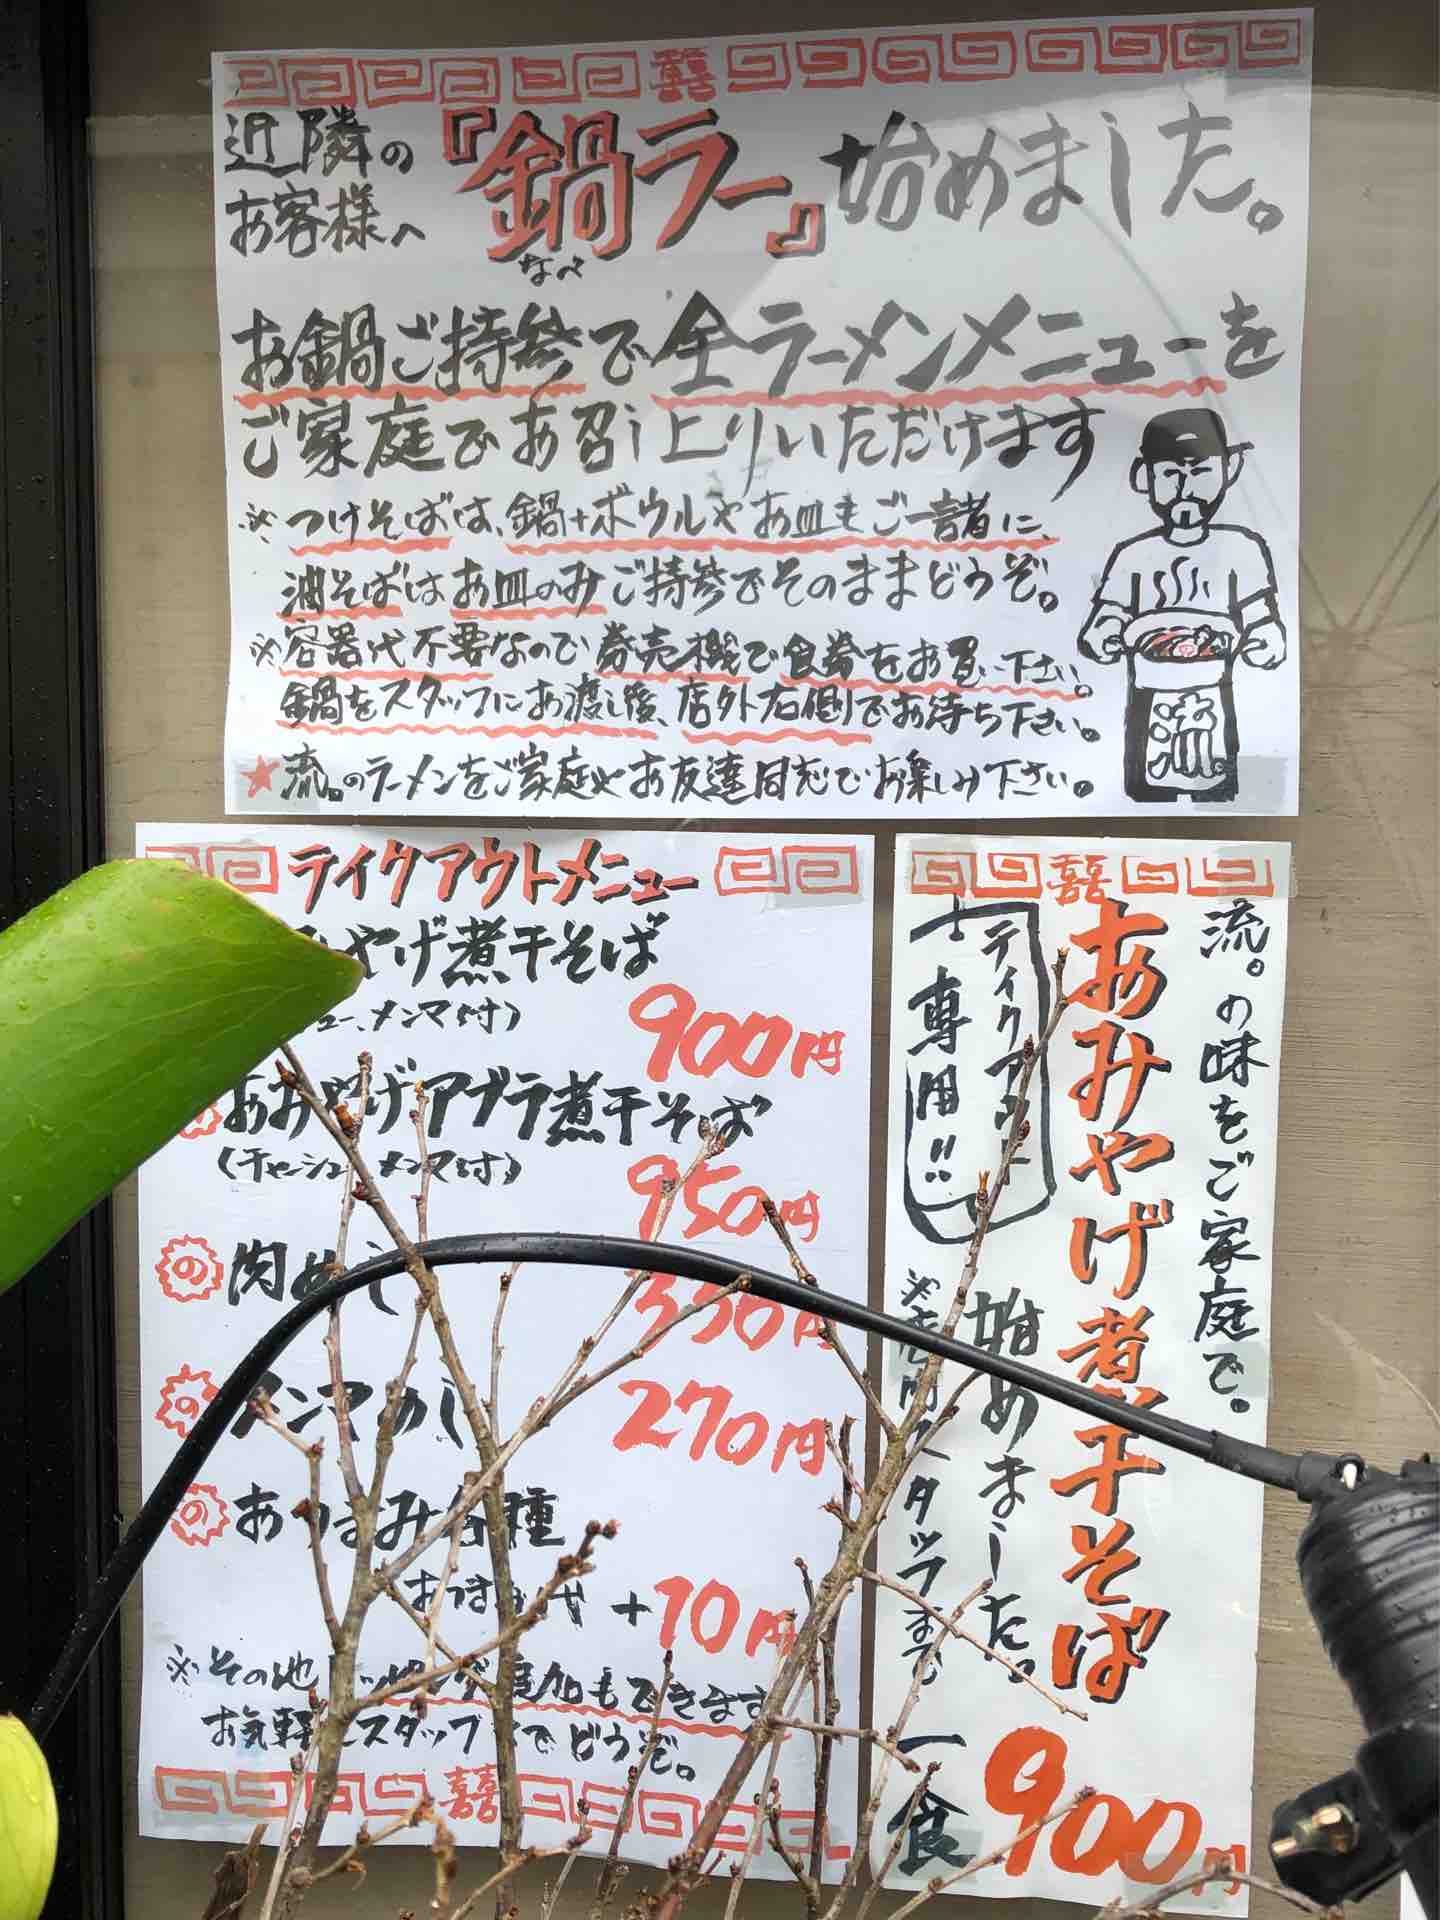 近隣の
お客様へ
『鍋ラー』始めました。
なべ
お鍋ご持参で全ラーメンメニューを
ご家庭でお召し上りいただけます
※つけそばは、鍋+ボウルやお皿もご一諸に、
油そばはお皿のみご持参でそのままどうぞ。
※容器代不要なので券売機で食券をお買い下さい。
鍋をスタッフにお渡し後、店外右側でお待ち下さい。
★流。のラーメンをご家庭やお友達同志でお楽しみ下さい。
流。
テイクアウトメニュー
みやげ煮干そば
ュー、メンマ付)
900円
おみやげアブラ煮干そば
(チャーシュー メンマ付)
950円
の 肉めし
330円
の メンマめし
270円
の おつまみ各種
おつまみや +10円
※その他トッピング追加もできます
お気軽にスタッフまでどうぞ。
流。の味をご家庭で。
おみやげ煮干そば
テイクアウト
専用!!
始めました。
スタッフまで
一食900円